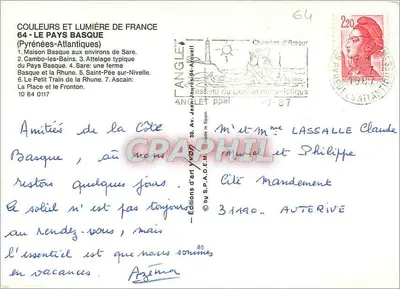 COULEURS ET LUMIÈRE DE FRANCE
64 - LE PAYS BASQUE
(Pyrénées-Atlantiques)
1. Maison Basque aux environs de Sare.
2. Cambo-les-Bains. 3. Attelage typique
du Pays Basque. 4. Sare: une ferme
Basque et la Rhune. 5. Saint-Pée sur-Nivelle.
6 Le Petit Train de la Rhune. 7. Ascain:
La Place et le Fronton.
10 64 0117
Amitiés de la Côte
Basque, où nous
restons quelques jours.
Le soleil n'est pas toujours
au rendez-vous, mais
l'essentiel est que nous sommes
en vacances. Azéma
Editions d'art yvon
30, Av. Jean-Jaurès, Arcueil
© by S.P.A.D.E.M.
Made in Spain
85
64
ANGLET
Chambre d'Amour
Festival du Dessin Humoristique
ANGLET ppal
7-87
2,20
PYRENEES ATLANTIQUES
M et Mme LASSALLE Claude
Muriel et Philippe
Cité Mandement
31190. AUTERIVE
CPAPHIL